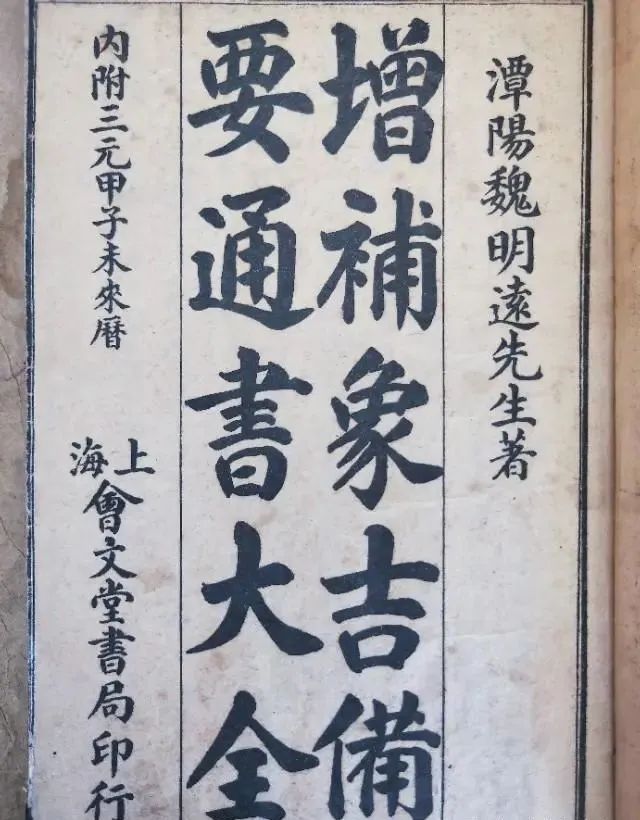 潭陽魏明遠先生著
增補象吉備
要通書大全
內附三元甲子未來曆
上海
會文堂書局印行